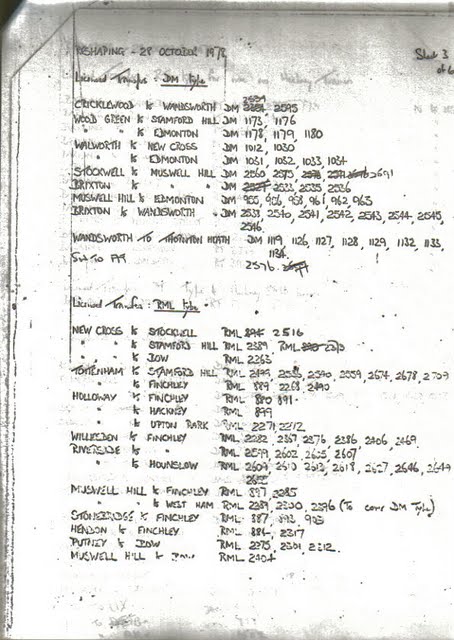 RESHAPING - 28 OCTOBER 1978
Sheet 3
of 6
Licensed Transfers: DM Type
CRICKLEWOOD to WANDSWORTH DM 2595
WOOD GREEN to STAMFORD HILL DM 1173, 1176
" to EDMONTON DM 1178, 1179, 1180
WALWORTH to NEW CROSS DM 1012, 1030
" to EDMONTON DM 1031, 1032, 1033, 1034
STOCKWELL to MUSWELL HILL DM 2560, 2575, 2691
BRIXTON to " " DM 2533, 2535, 2536
MUSWELL HILL to EDMONTON DM 955, 956, 958, 961, 962, 963
BRIXTON to WANDSWORTH DM 2533, 2540, 2541, 2542, 2543, 2544, 2545,
2546
WANDSWORTH TO THORNTON HEATH DM 1119, 1126, 1127, 1128, 1129, 1132, 1133,
1134
2576
Licensed Transfers: RML Type
NEW CROSS to STOCKWELL RML 2516
" to STAMFORD HILL RML 2389
" to BOW RML 2263
TOTTENHAM to STAMFORD HILL RML 2499, 2590, 2559, 2674, 2678, 2709
" to FINCHLEY RML 889, 2268, 2490
HOLLOWAY to FINCHLEY RML 880, 891
" to HACKNEY RML 899
" to UPTON PARK RML 2271, 2212
WILLESDEN to FINCHLEY RML 2282, 2367, 2376, 2386, 2406, 2469
RIVERSIDE to " RML 2599, 2602, 2605, 2607
" to HOUNSLOW RML 2609, 2610, 2613, 2618, 2627, 2646, 2649
MUSWELL HILL to FINCHLEY RML 897, 2285
" to WEST HAM RML 2289, 2300, 2396 (To cover DM Type)
STONEBRIDGE to FINCHLEY RML 887, 893, 903
HENDON to FINCHLEY RML 884, 2317
PUTNEY to BOW RML 2275, 2301, 2312
MUSWELL HILL to BOW RML 2404